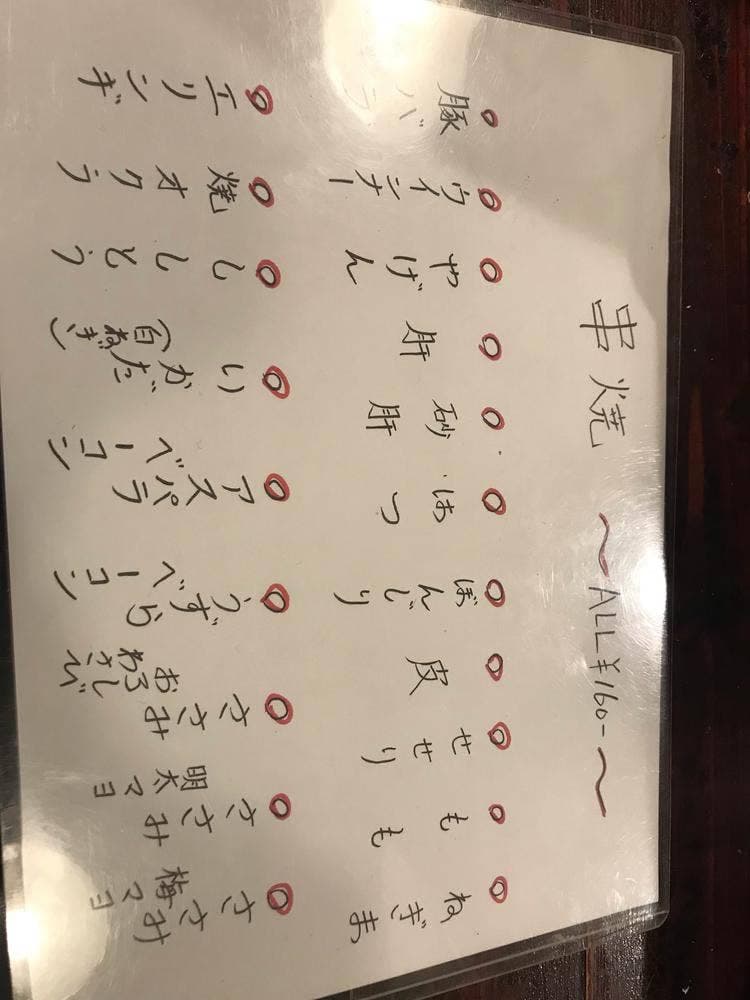 串焼
～ALL¥160-～
ねぎま
もも
せせり
皮
ぼんじり
はつ
砂肝
肝
やげん
ウインナー
豚バラ
ささみ
梅マヨ
ささみ
明太マヨ
ささみ
おろし
わさび
うずら
ベーコン
アスパラ
ベーコン
いかだ
(白ねぎ)
ししとう
焼オクラ
エリンギ